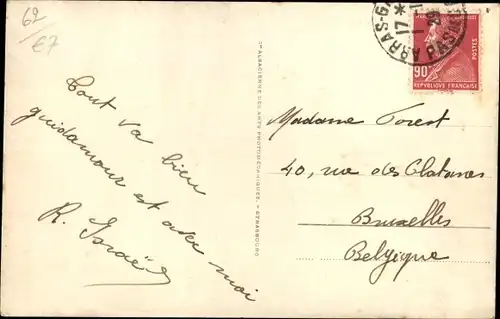 62
€7
ARRAS-G
17 *
PAS
POSTES
90
REPUBLIQUE FRANÇAISE
Cie ALSACIENNE DES ARTS PHOTOMÉCANIQUES. — STRASBOURG
Tout va bien
guidamour est avec moi
R. Israël
Madame Forest
40, rue des Platanes
Bruxelles
Belgique